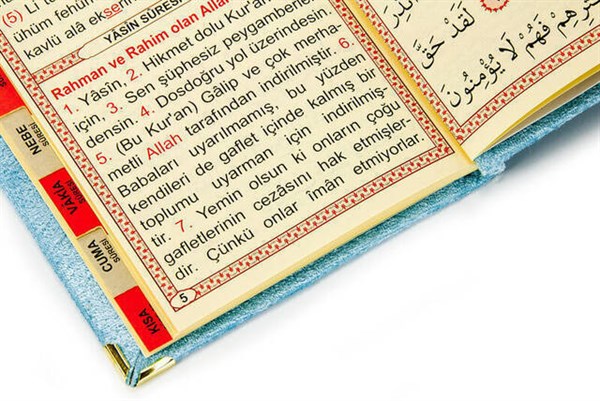 (5) Li te
ühüm fehüm
kavlü alâ ekse
YÂSİN SÛRESİ
Rahman ve Rahim olan Allah
1. Yâsin, 2. Hikmet dolu Kur'an
için, 3. Sen şüphesiz peygamberler
densin. 4. Dosdoğru yol üzerindesin.
5. (Bu Kur'an) Gâlip ve çok merha-
metli Allah tarafından indirilmiştir. 6.
Babaları uyarılmamış, bu yüzden
kendileri de gaflet içinde kalmış bir
toplumu uyarman için indirilmiş-
tir. 7. Yemin olsun ki onların çoğu
gafletlerinin cezâsını hak etmişler-
dir. Çünkü onlar îmân etmiyorlar.
5
NEBE SÛRESİ
VÂKIA SÛRESİ
CUMA SÛRESİ
KISA
لَقَدْ حَقَّ
فَهُمْ لَا يُؤْمِنُونَ